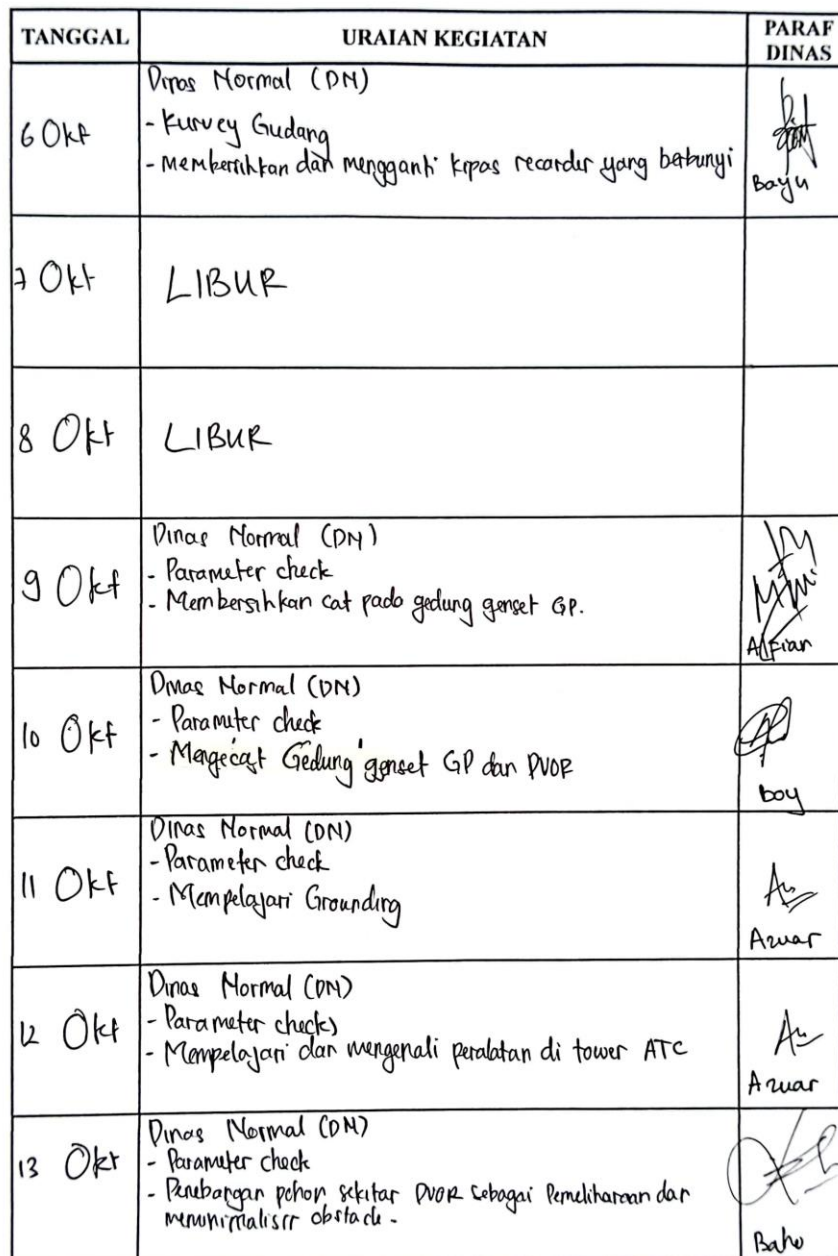 TANGGAL URAIAN KEGIATAN PARAF DINAS
6 Okt
Dinas Normal (DN)
- Kurvey Gudang
- Membersihkan dan mengganti kipas recorder yang berbunyi
Bayu
7 Okt LIBUR
8 Okt LIBUR
9 Okt
Dinas Normal (DN)
- Parameter check
- Membersihkan cat pada gedung genset GP.
Alfian
10 Okt
Dinas Normal (DN)
- Parameter check
- Mengecat Gedung genset GP dan DVOR
boy
11 Okt
Dinas Normal (DN)
- Parameter check
- Mempelajari Grounding
Azuar
12 Okt
Dinas Normal (DN)
- Parameter check
- Mempelajari dan mengenali peralatan di tower ATC
Azuar
13 Okt
Dinas Normal (DN)
- Parameter check
- Penebangan pohon sekitar DVOR sebagai Pemeliharaan dan
menunimalisir obstacle.